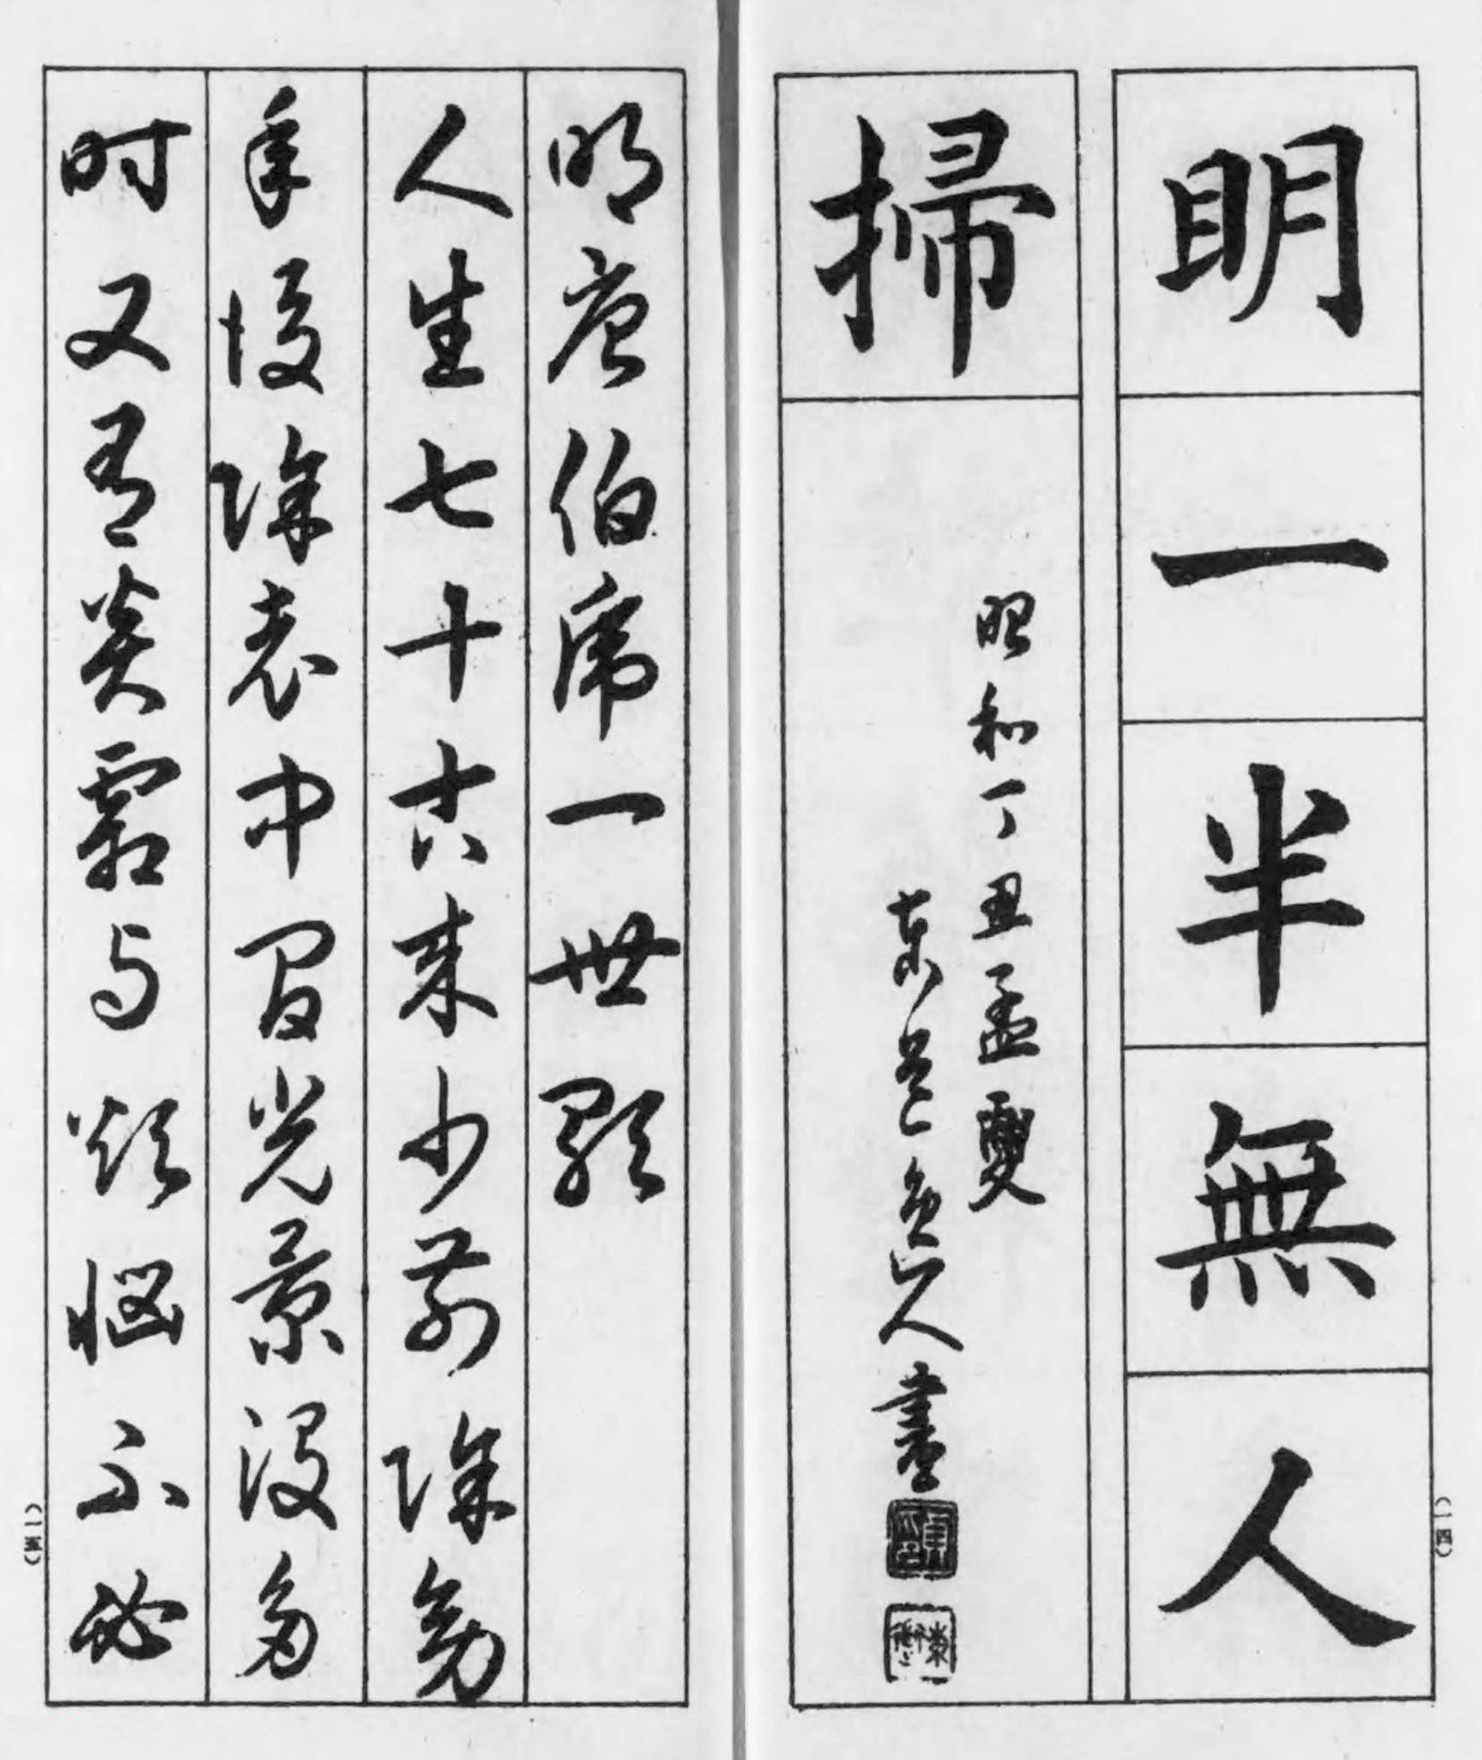 明一半無人
掃
昭和丁丑孟夏
東人書
(一四)
明唐伯虎一世歌
人生七十古來少前除幼
年後除老中間光景没多
時又有炎霜与煩惱不必
(一五)